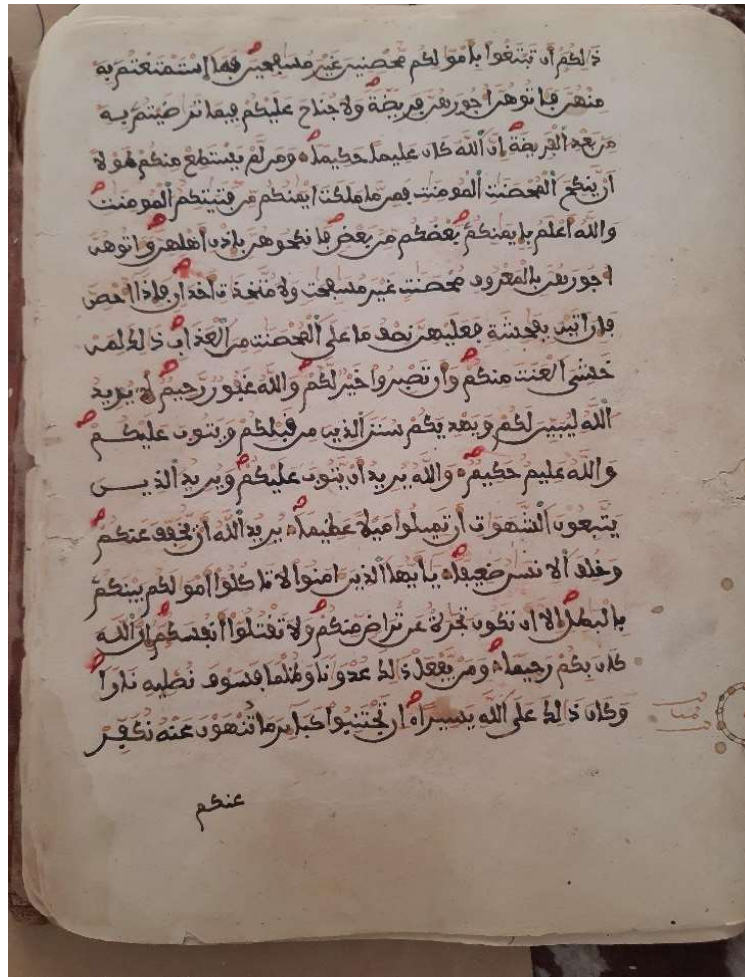 ذَالِكُمُ أَن تَبْتَغُوا بِأَمْوَلِكُم مُّحْصِنِينَ غَيْرَ مُسَفِحِينَ فَمَا اَسْتَمْتَعْتُم بِهِ
مِنْهُنَّ فَـَاتُوهُنَّ أُجُورَهُنَّ فَرِيضَةً وَلَا جُنَاحَ عَلَيْكُمْ فِيمَا تَرَضَيْتُم بِهِ
مِنْ بَعْدِ الْفَرِيضَةِ إِنَّ اللَّهَ كَانَ عَلِيمًا حَكِيمًا وَمَن لَّمْ يَسْتَطِعْ مِنكُمْ طَوْلًا
أَنْ يَنكِحَ الْمُحْصَنَتِ الْمُومِنَتِ فَمِن مَّا مَلَكَتَ اَيْمَنُكُم مِّن فَتَيَتِكُمُ الْمُومِنَتِ
وَاللَّهُ أَعْلَمُ بِإِيمَنِكُم بَعْضُكُم مِّن بَعْضٍ فَانكِحُوهُنَّ بِإِذْنِ أَهْلِهِنَّ وَءَاتُوهُنَّ
أُجُورَهُنَّ بِالْمَعْرُوفِ مُحْصَنَتٍ غَيْرَ مُسَفِحَتٍ وَلَا مُتَّخِذَتِ أَخْدَانٍ فَإِذَا أُحْصِنَّ
فَإِنَ اَتَيْنَ بِفَحِشَةٍ فَعَلَيْهِنَّ نِصْفُ مَا عَلَى الْمُحْصَنَتِ مِنَ الْعَذَابِ ذَالِكَ لِمَنْ
خَشِيَ الْعَنَتَ مِنكُمْ وَأَن تَصْبِرُوا خَيْرٌ لَّكُمْ وَاللَّهُ غَفُورٌ رَّحِيمٌ يُرِيدُ
اللَّهُ لِيُبَيِّنَ لَكُمْ وَيَهْدِيَكُمْ سُنَنَ الَّذِينَ مِن قَبْلِكُمْ وَيَتُوبَ عَلَيْكُمْ
وَاللَّهُ عَلِيمٌ حَكِيمٌ وَاللَّهُ يُرِيدُ أَنْ يَتُوبَ عَلَيْكُمْ وَيُرِيدُ الَّذِينَ
يَتَّبِعُونَ الشَّهَوَتِ أَن تَمِيلُوا مَيْلًا عَظِيمًا يُرِيدُ اللَّهُ أَنْ يُخَفِّفَ عَنكُمْ
وَخُلِقَ الْإِنسَنُ ضَعِيفًا يَأَيُّهَا الَّذِينَ ءَامَنُوا لَا تَاكُلُوا أَمْوَلَكُم بَيْنَكُم
بِالْبَطِلِ إِلَّا أَن تَكُونَ تِجَرَةٌ عَن تَرَاضٍ مِّنكُمْ وَلَا تَقْتُلُوا أَنفُسَكُمْ إِنَّ اللَّهَ
كَانَ بِكُمْ رَحِيمًا وَمَنْ يَفْعَلْ ذَالِكَ عُدْوَانًا وَظُلْمًا فَسَوْفَ نُصْلِيهِ نَارًا
وَكَانَ ذَالِكَ عَلَى اللَّهِ يَسِيرًا إِن تَجْتَنِبُوا كَبَائِرَ مَا تُنْهَوْنَ عَنْهُ نُكَفِّرْ
عنكم